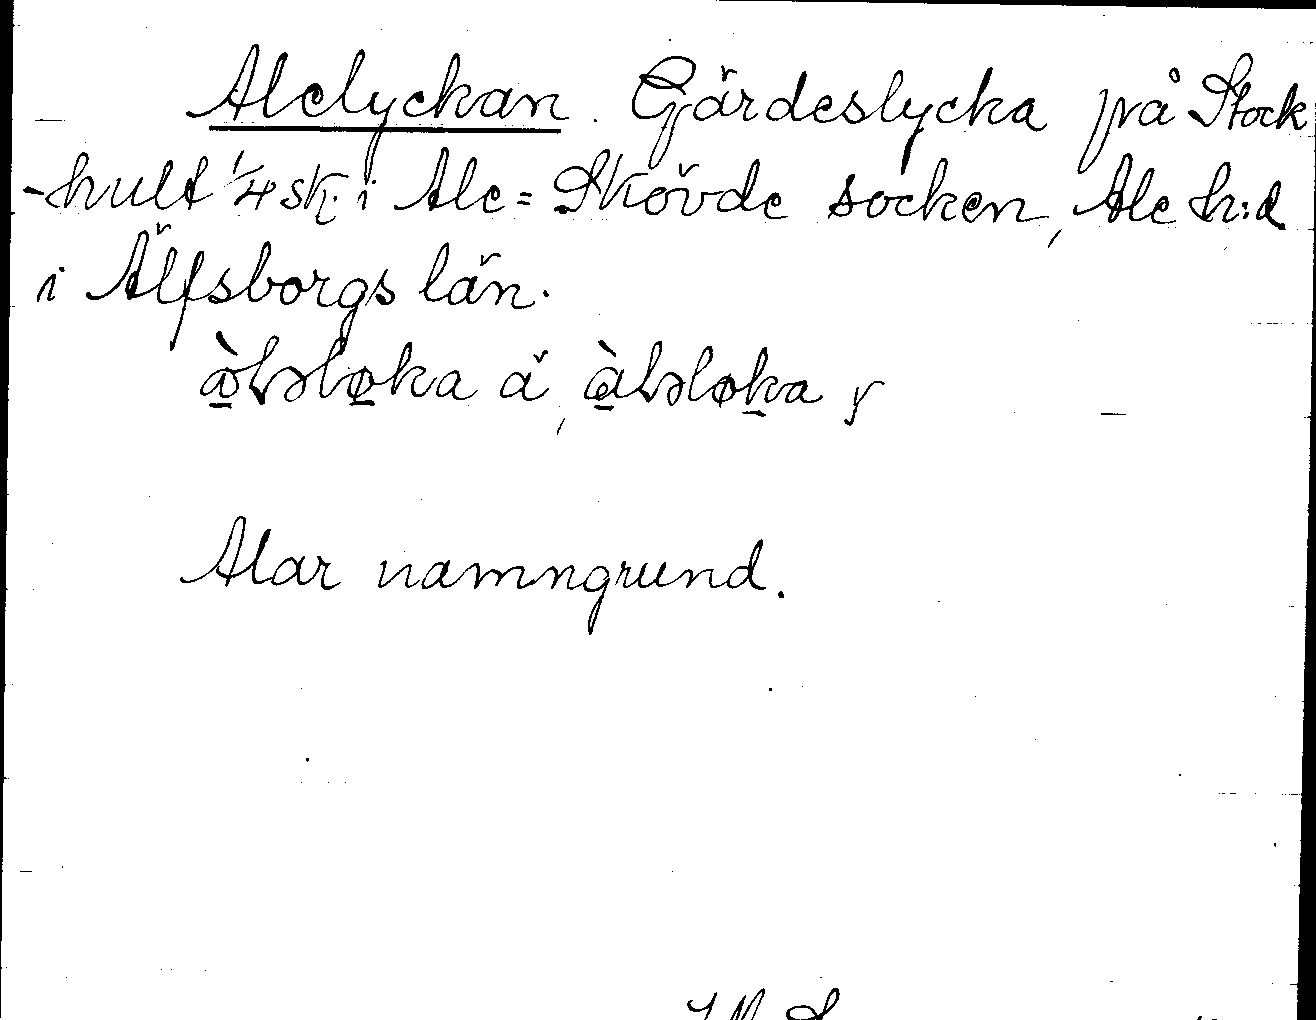 Alelyckan. Gärdeslycka på Stock
-hult 1/4 sk. i Ale=Skövde socken, Ale h:d
i Älfsborgs län.
Alar namngrund.